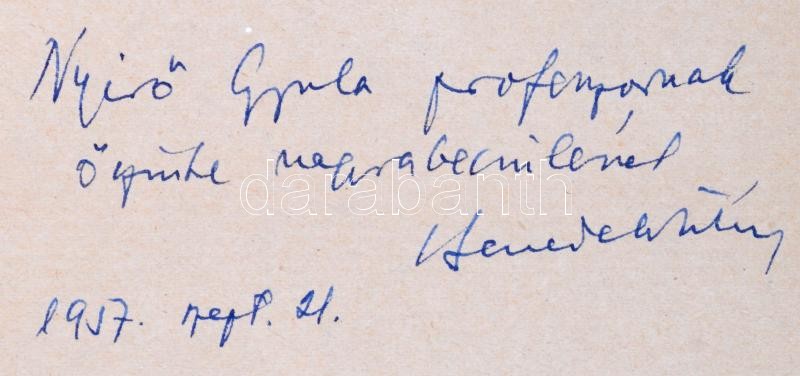 Nyirő Gyula professzornak
őszinte nagyrabecsüléssel
Benedek István
1957. szept. 21.
darabanth